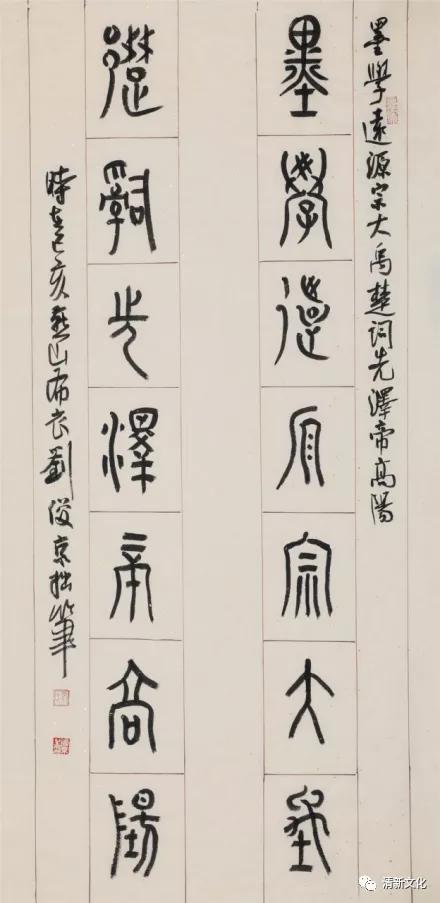 墨學遠源宗大禹楚詞先澤帝高陽
墨學遠原宗大禹
楚辭先澤帝高陽
時在己亥燕山布衣劉俊京拙筆
清新文化